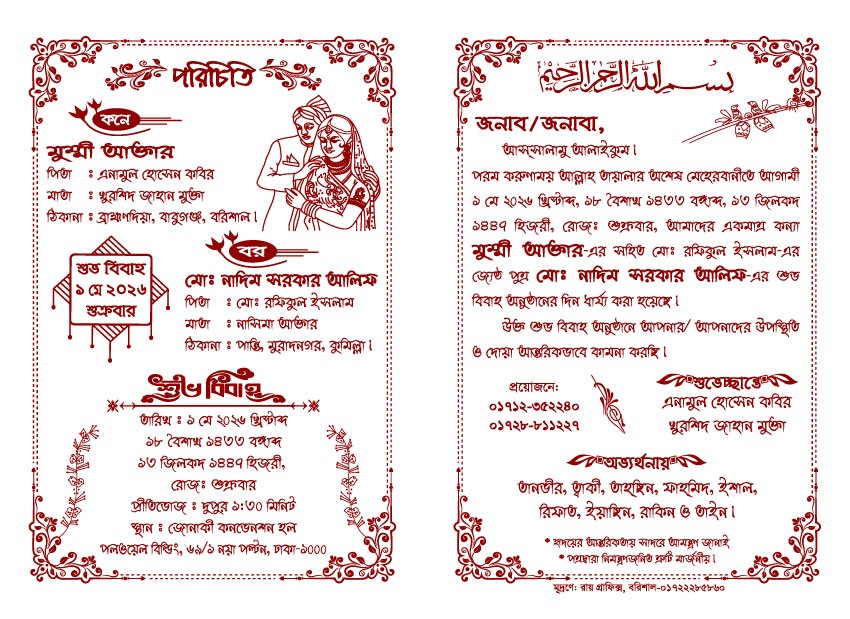 পরিচিতি
কনে
মুম্মী আক্তার
পিতা : এনামুল হোসেন কবির
মাতা : খুরশিদ জাহান মুক্তা
ঠিকানা : ব্রাহ্মণদিয়া, বাবুগঞ্জ, বরিশাল।
শুভ বিবাহ
৯ মে ২০২৬
শুক্রবার
বর
মোঃ নাদিম সরকার আলিফ
পিতা : মোঃ রফিকুল ইসলাম
মাতা : নাসিমা আক্তার
ঠিকানা : পান্তি, মুরাদনগর, কুমিল্লা।
শুভ বিবাহ
তারিখ : ৯ মে ২০২৬ খ্রিষ্টাব্দ
১৮ বৈশাখ ১৪৩৩ বঙ্গাব্দ
১৩ জিলকদ ১৪৪৭ হিজরী,
রোজঃ শুক্রবার
প্রীতিভোজ : দুপুর ১:৩০ মিনিট
স্থান : জোনাকী কনভেনশন হল
পলওয়েল বিল্ডিং, ৬৯/১ নয়া পল্টন, ঢাকা-১০০০
بسم الله الرحمن الرحيم
জনাব/জনাবা,
আস্সালামু আলাইকুম।
পরম করুণাময় আল্লাহ তায়ালার অশেষ মেহেরবানীতে আগামী
৯ মে ২০২৬ খ্রিষ্টাব্দ, ১৮ বৈশাখ ১৪৩৩ বঙ্গাব্দ, ১৩ জিলকদ
১৪৪৭ হিজরী, রোজঃ শুক্রবার, আমাদের একমাত্র কন্যা
মুম্মী আক্তার-এর সহিত মোঃ রফিকুল ইসলাম-এর
জ্যেষ্ঠ পুত্র মোঃ নাদিম সরকার আলিফ-এর শুভ
বিবাহ অনুষ্ঠানের দিন ধার্য্য করা হয়েছে।
উক্ত শুভ বিবাহ অনুষ্ঠানে আপনার/ আপনাদের উপস্থিতি
ও দোয়া আন্তরিকভাবে কামনা করছি।
প্রয়োজনে:
০১৭১২-৩৫২২৪০
০১৭২৮-৮১১২২৭
শুভেচ্ছান্তে
এনামুল হোসেন কবির
খুরশিদ জাহান মুক্তা
অভ্যর্থনায়
তানভীর, ত্বাকী, তাহছিন, ফাহমিদ, ইশাল,
রিফাত, ইয়াছিন, রাকিন ও তাইন।
* হৃদয়ের আন্তরিকতায় সাদরে আমন্ত্রণ জানাই
* পত্রদ্বারা নিমন্ত্রণজনিত ত্রুটি মার্জনীয়।
মুদ্রণে: রায় গ্রাফিক্স, বরিশাল-০১৭২২২৮৫৮৬০